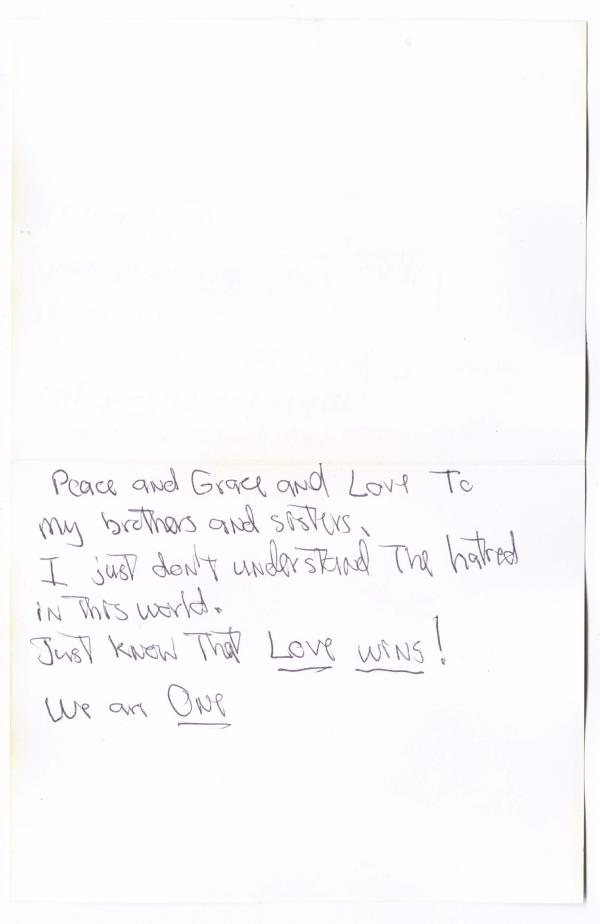 Peace and Grace and Love To
my brothers and sisters.
I just don't understand The hatred
in This world.
Just know That Love wins!
We are One